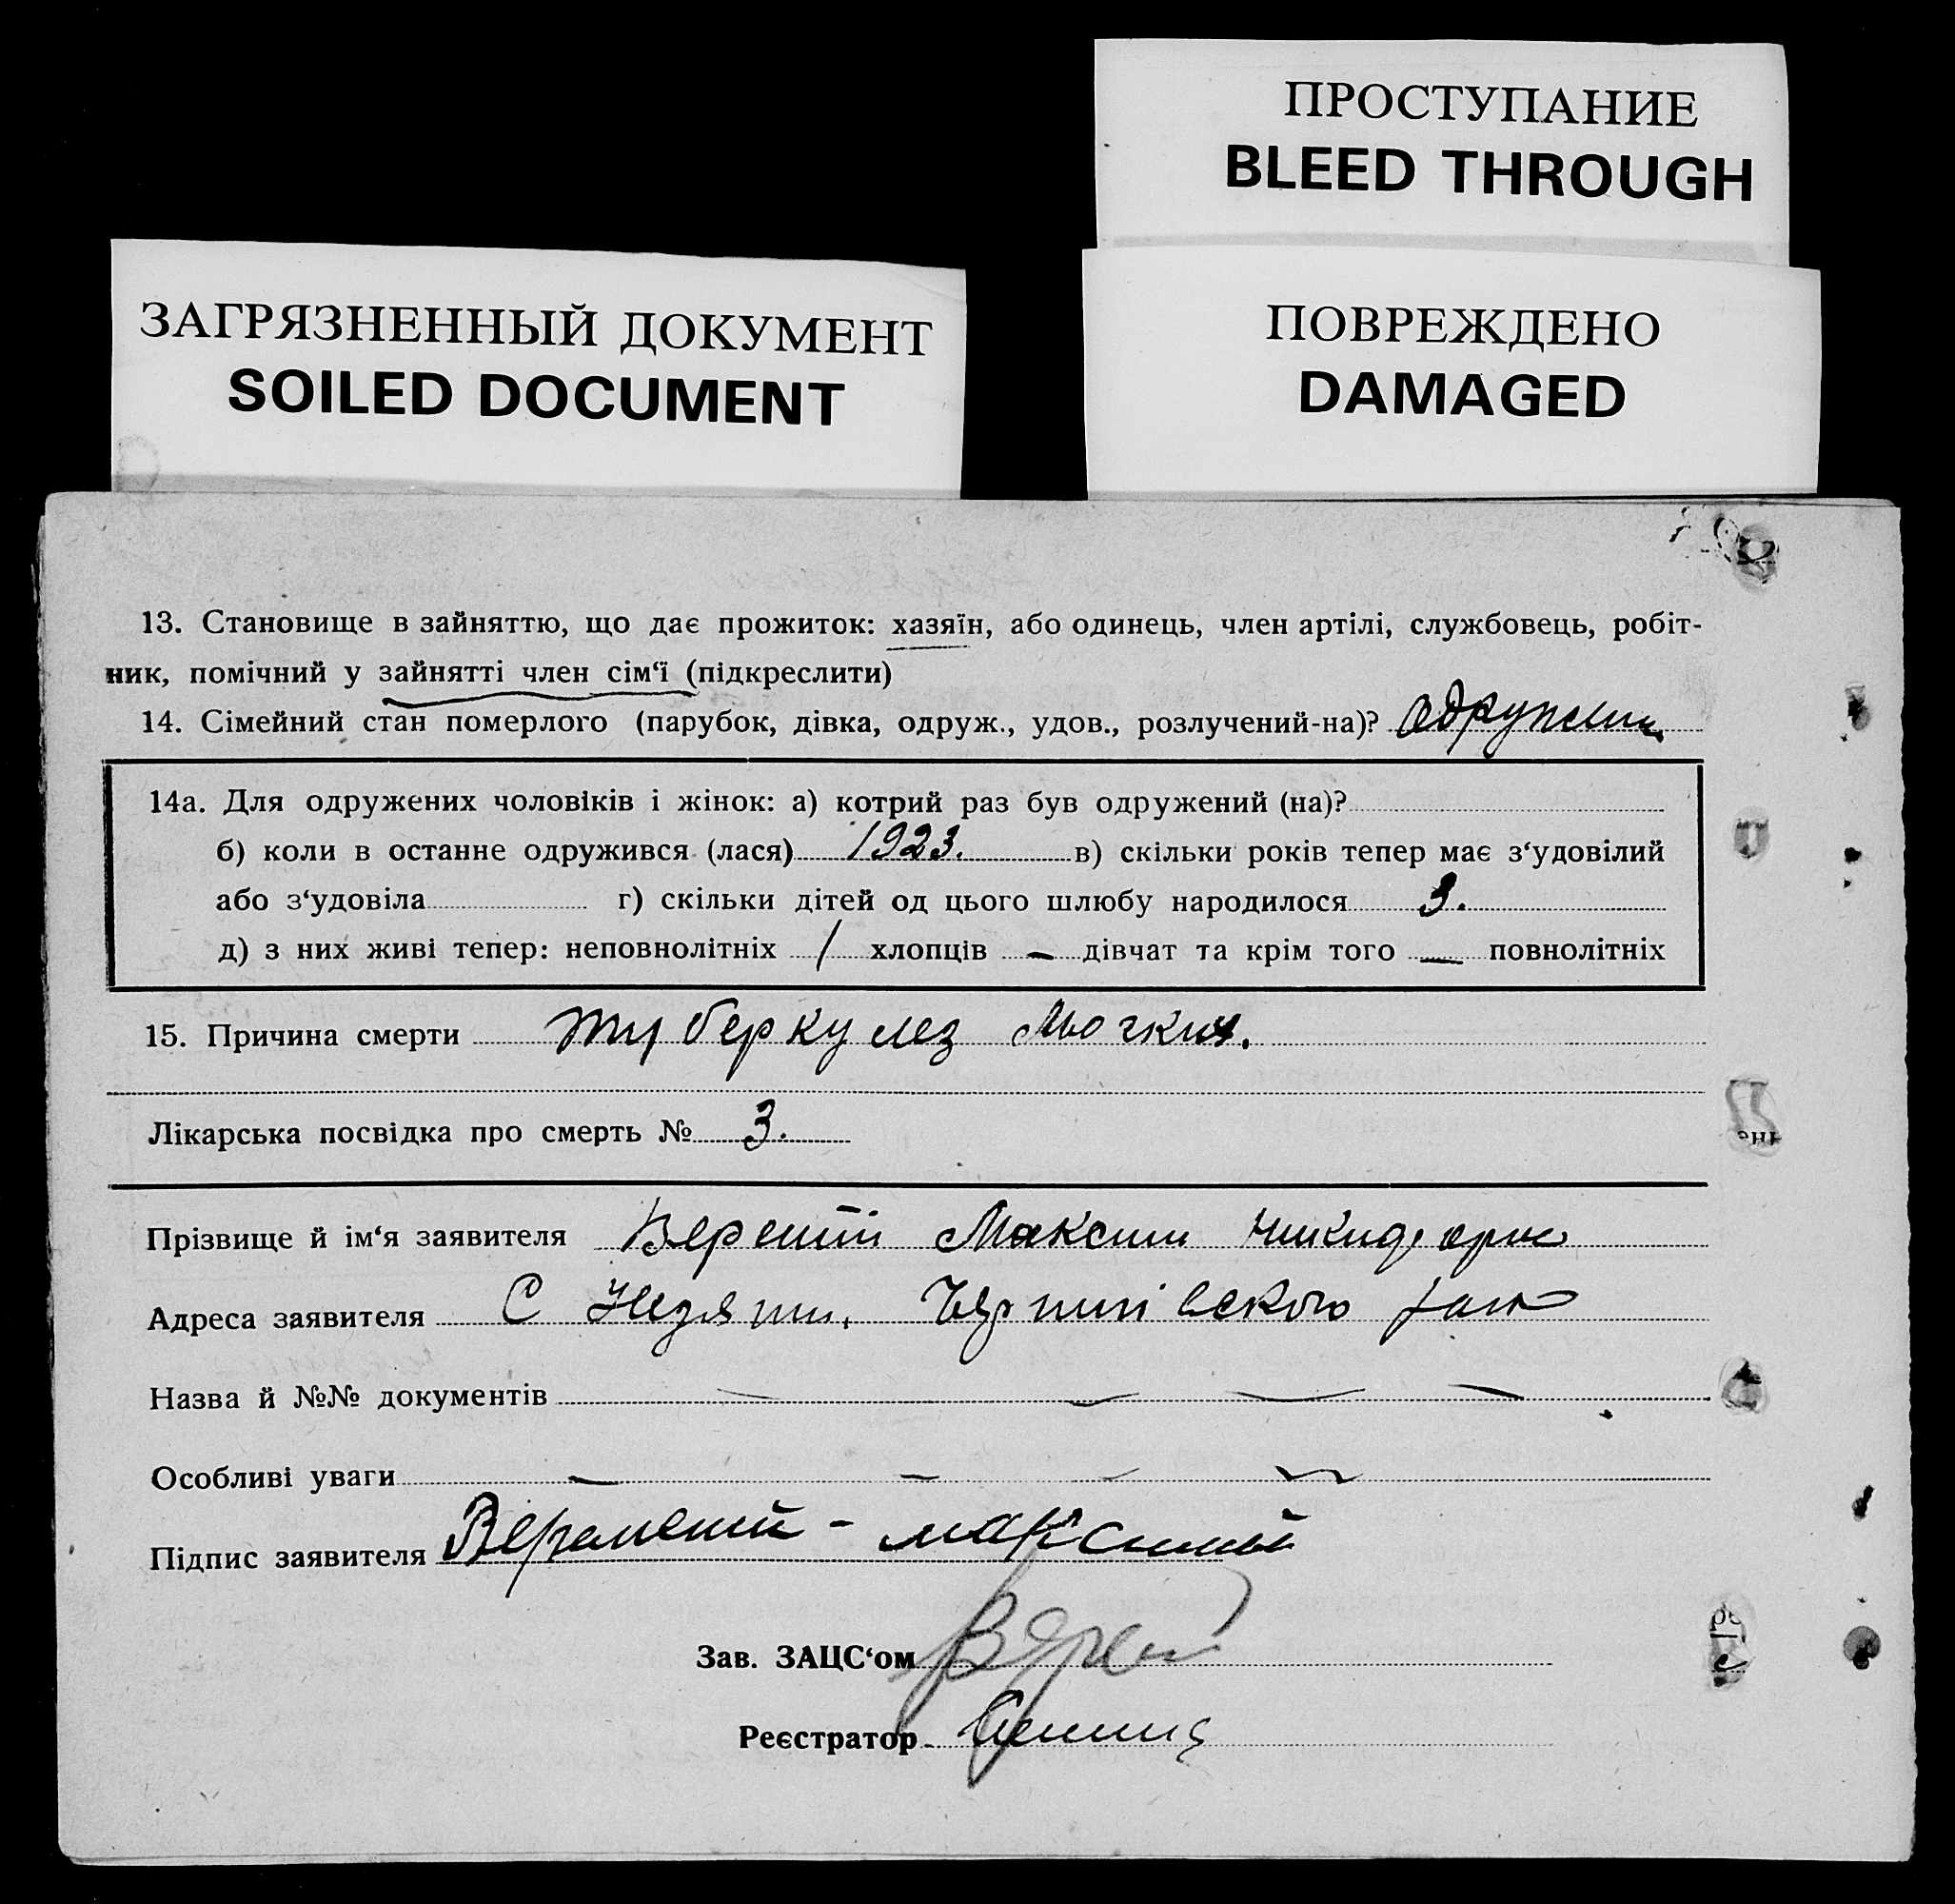 ПРОСТУПАНИЕ
BLEED THROUGH
ЗАГРЯЗНЕННЫЙ ДОКУМЕНТ
SOILED DOCUMENT
ПОВРЕЖДЕНО
DAMAGED
13. Становище в зайняттю, що дає прожиток: хазяїн, або одинець, член артілі, службовець, робіт-
ник, помічний у зайнятті член сім‘ї (підкреслити)
14. Сімейний стан померлого (парубок, дівка, одруж., удов., розлучений-на)?
14а. Для одружених чоловіків і жінок: а) котрий раз був одружений (на)?
б) коли в останне одружився (лася) 1923. в) скільки років тепер має з‘удовілий
або з‘удовіла г) скільки дітей од цього шлюбу народилося 3.
д) з них живі тепер: неповнолітніх 1 хлопців — дівчат та крім того — повнолітніх
15. Причина смерти туберкулез
Лікарська посвідка про смерть № 3.
Прізвище й ім‘я заявителя Максим
Адреса заявителя С
Назва й №№ документів
Особливі уваги
Підпис заявителя
Зав. ЗАЦС‘ом
Реєстратор